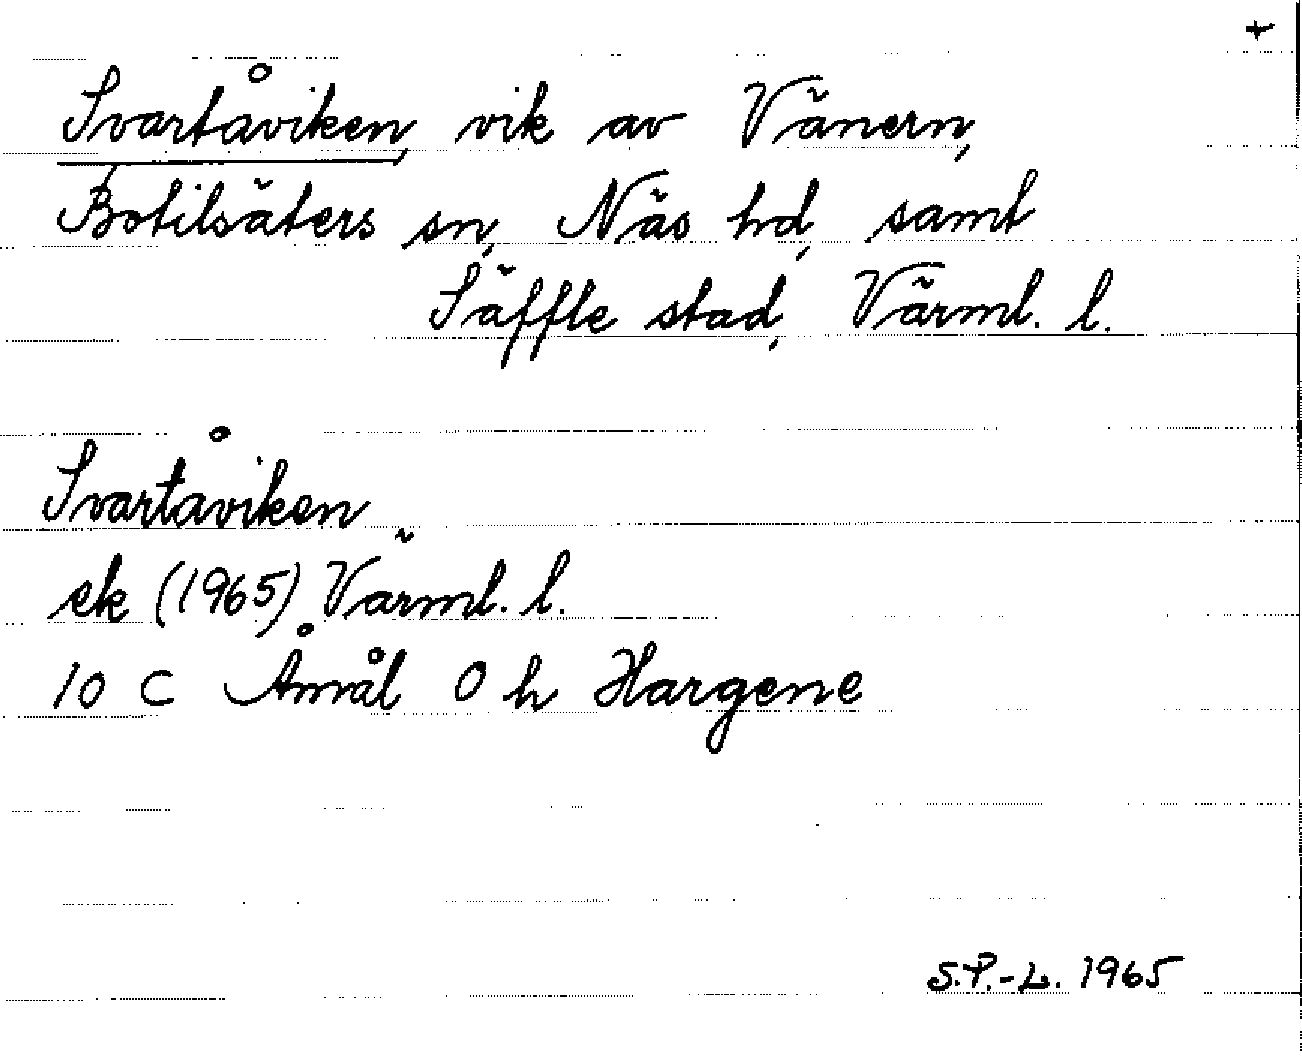 +
Svartåviken, vik av Vänern,
Botilsäters sn, Näs hd, samt
Säffle stad, Värml. l.
Svartåviken
ek (1965) Värml. l.
10 C Åmål 0 h Hargene
S.P.-L. 1965